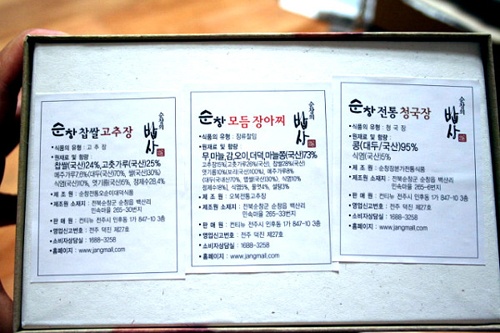 순창 찹쌀고추장
순창의
밥사
• 식품의 유형 : 고 추 장
• 원재료 및 함량
찹쌀(국산)24%, 고춧가루(국산)25%
메주가루7.6%(대두(국산)70%, 쌀(국산)30%)
식염(국산)10%, 엿기름(국산)5%, 정제수28.4%
• 제 조 원 : 순창전통오순이대덕식품
• 제조원 소재지 : 전북순창군 순창읍 백산리
민속마을 265-30번지
• 판 매 원 : 컨티뉴 전주시 인후동 1가 847-10 3층
• 영업신고번호 : 전주 덕진 제27호
• 소비자상담실 : 1688-3258
• 홈페이지 : www.jangmall.com
순창 모듬 장아찌
순창의
밥사
• 식품의 유형 : 장류절임
• 원재료 및 함량
무,마늘,감,오이,더덕,마늘쫑(국산)73%
(대두(국산)70%, 맵쌀(국산)30%), 식염10%
정제수8%), 식염5%, 물엿4%, 설탕3%
• 제 조 원 : 오복전통고추장
• 제조원 소재지 : 전북순창군 순창읍 백산리
민속마을 265-33번지
• 판 매 원 : 컨티뉴 전주시 인후동 1가 847-10 3층
• 영업신고번호 : 전주 덕진 제27호
• 소비자상담실 : 1688-3258
• 홈페이지 : www.jangmall.com
순창 전통 청국장
순창의
밥사
• 식품의 유형 : 청 국 장
• 원재료 및 함량
콩(대두/국산)95%
식염(국산)5%
• 제 조 원 : 순창장본가전통식품
• 제조원 소재지 : 전북순창군 순창읍 백산리
민속마을 265-6번지
• 판 매 원 : 컨티뉴 전주시 인후동 1가 847-10 3층
• 영업신고번호 : 전주 덕진 제27호
• 소비자상담실 : 1688-3258
• 홈페이지 : www.jangmall.com